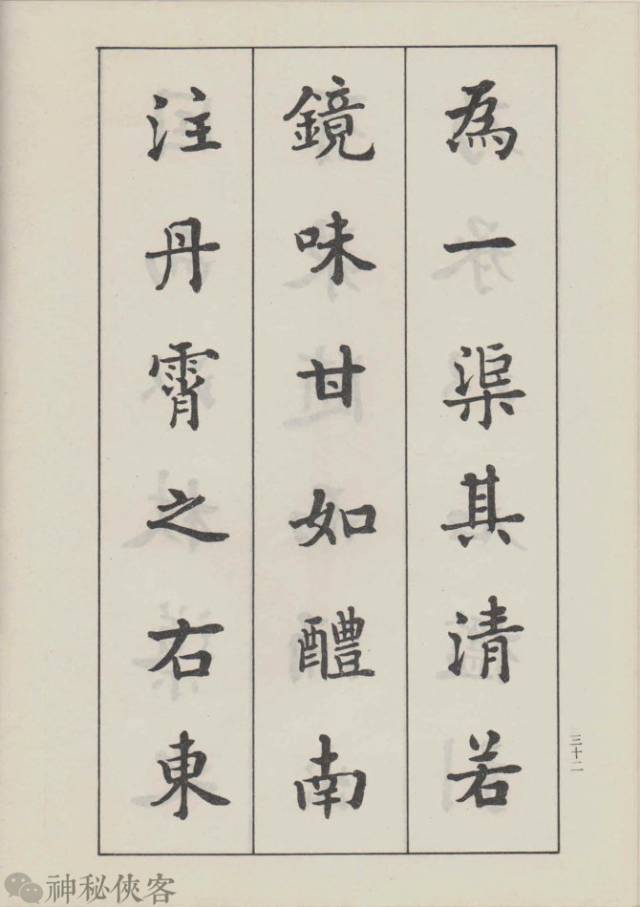 為一渠其清若
鏡味甘如醴南
注丹霄之右東
三十二
神秘俠客